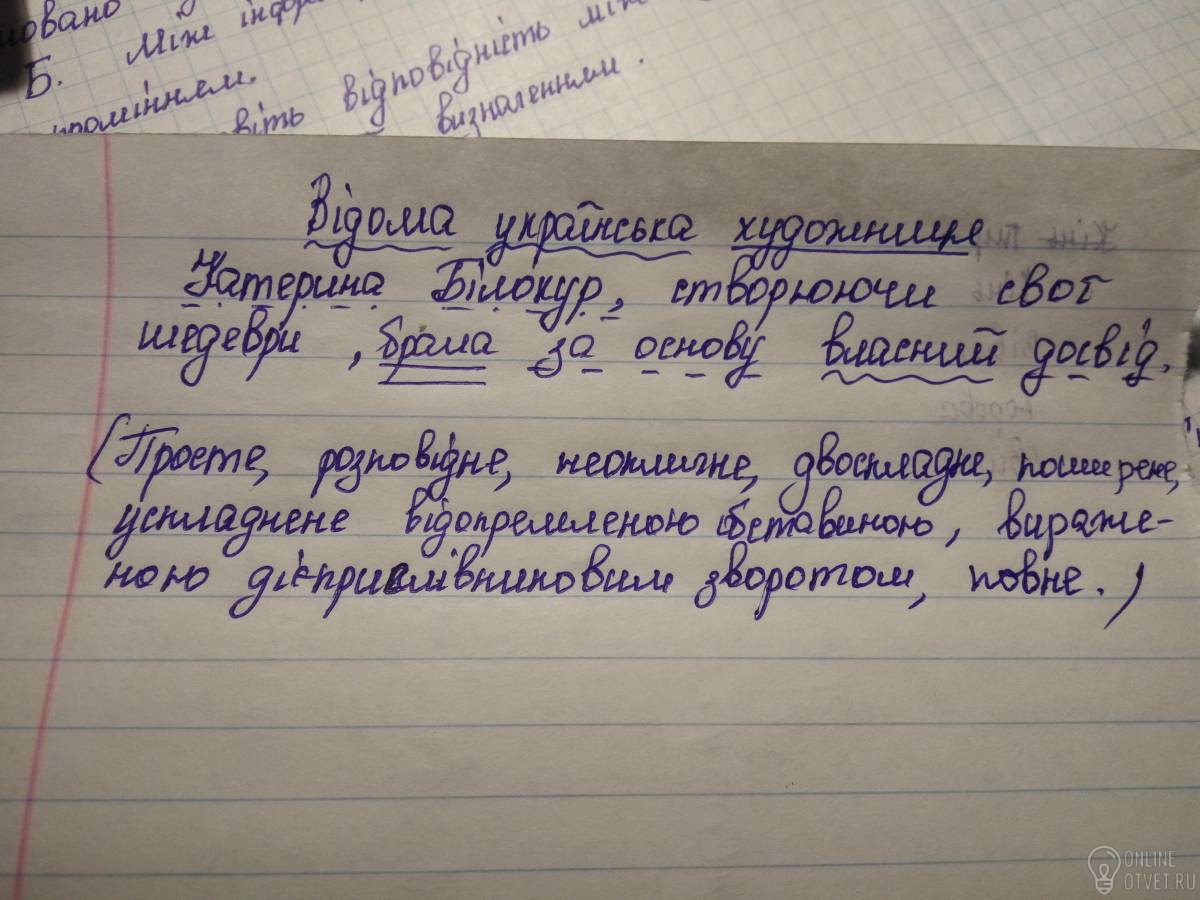 мовано
Б. Між інфор
промінням.
віть відповідність між
визначенням.
Відома українська художниця
Катерина Білокур, створюючи свої
шедеври, брала за основу власний досвід.
(Просте, розповідне, неокличне, двоскладне, поширене,
ускладнене відокремленою обставиною, вираже-
ною дієприслівниковим зворотом, повне.)
ONLINE
OTVET.RU